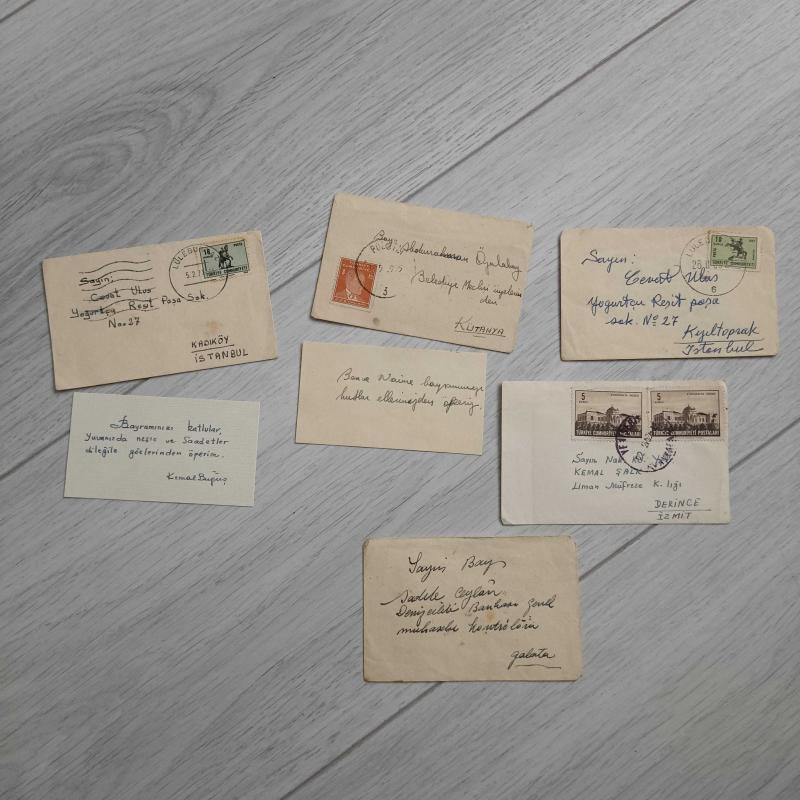 LÜLEBU
5.2.7
10
POSTA
TÜRKİYE CUMHURİYETİ
Sayın:
Cevat Ulus
Yoğurtçu Reşit Paşa Sok.
No=27
KADIKÖY
İSTANBUL
Bayramınızı kutlular,
Yuvanızda neşe ve Saadetler
dileğile gözlerinden öperim.
Kemal
Bay: Abdurrahman
Belediye Meclisi
den
KÜTAHYA
3
bayramınızı
kutlar ellerinizden öperiz.
LÜLEBU
6
10
TÜRKİYE CUMHURİYETİ
Sayın:
Cevat Ulus
Yoğurtçu Reşit paşa
sok. No 27
Kızıltoprak
İstanbul
5
5
TÜRKİYE CUMHURİYETİ POSTALARI
TÜRKİYE CUMHURİYETİ POSTALARI
Sayın
KEMAL ŞALK
Liman Müfreze K. lığı
DERİNCE
İZMİT
Sayın Bay
Ceylân
Denizcilik Bankası Genel
muhasebe kontrolörü
galata